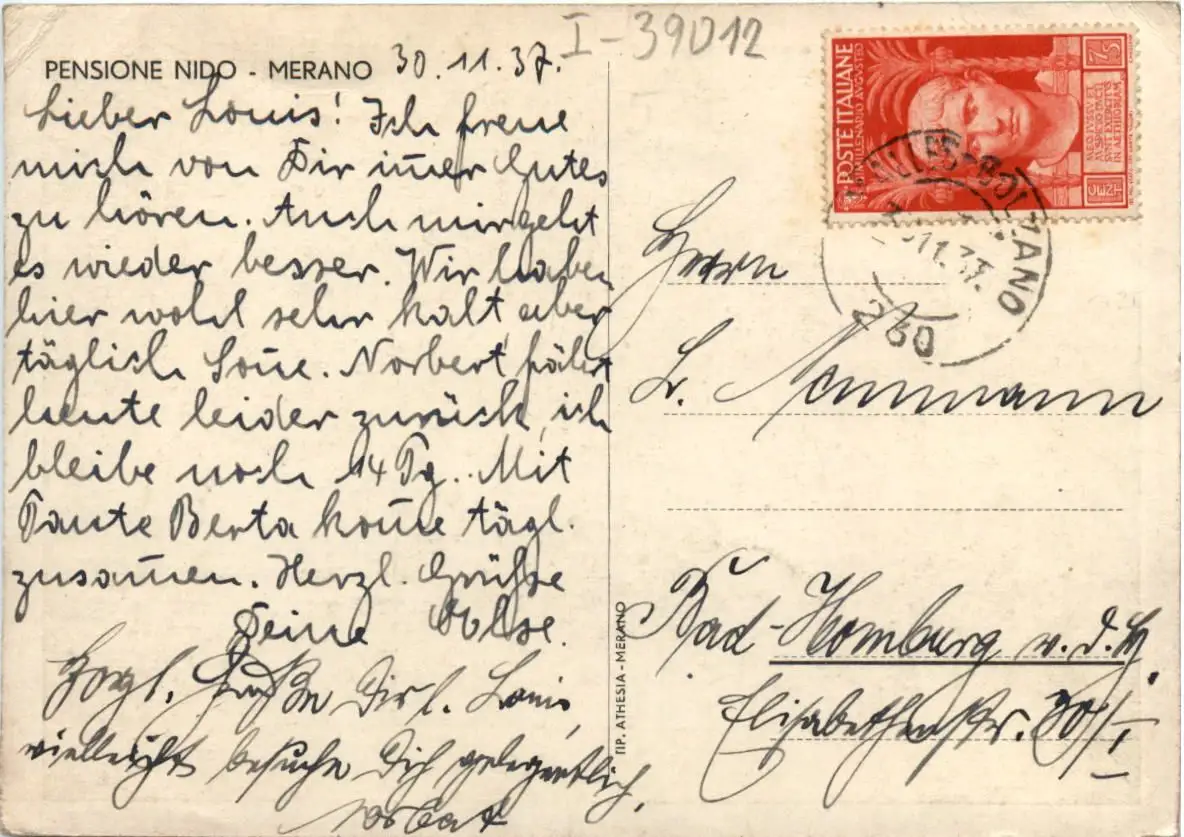 PENSIONE NIDO - MERANO 30.11.37.
I-39012
Lieber Louis! Ich freue
mich von Dir im̄er Gutes
zu hören. Auch mir geht
es wieder besser. Wir haben
hier wohl sehr kalt, aber
täglich Son̄e. Norbert fährt
heute leider zurück, ich
bleibe noch 14 Tg.. Mit
Tante Berta kom̄e tägl.
zusam̄en. Herzl. Grüsse
Deine
Herzl. Grüße Dir l. Louis,
vielleicht besuche Dich gelegentlich.
Norbert
TIP. ATHESIA - MERANO
POSTE ITALIANE
BIMILLENARIO AUGUSTEO
75
CENT
BOLZANO
11.37.
260
Herrn
L. Neumann
Bad-Homburg v.d.H.
Elisabethenstr. 30/I